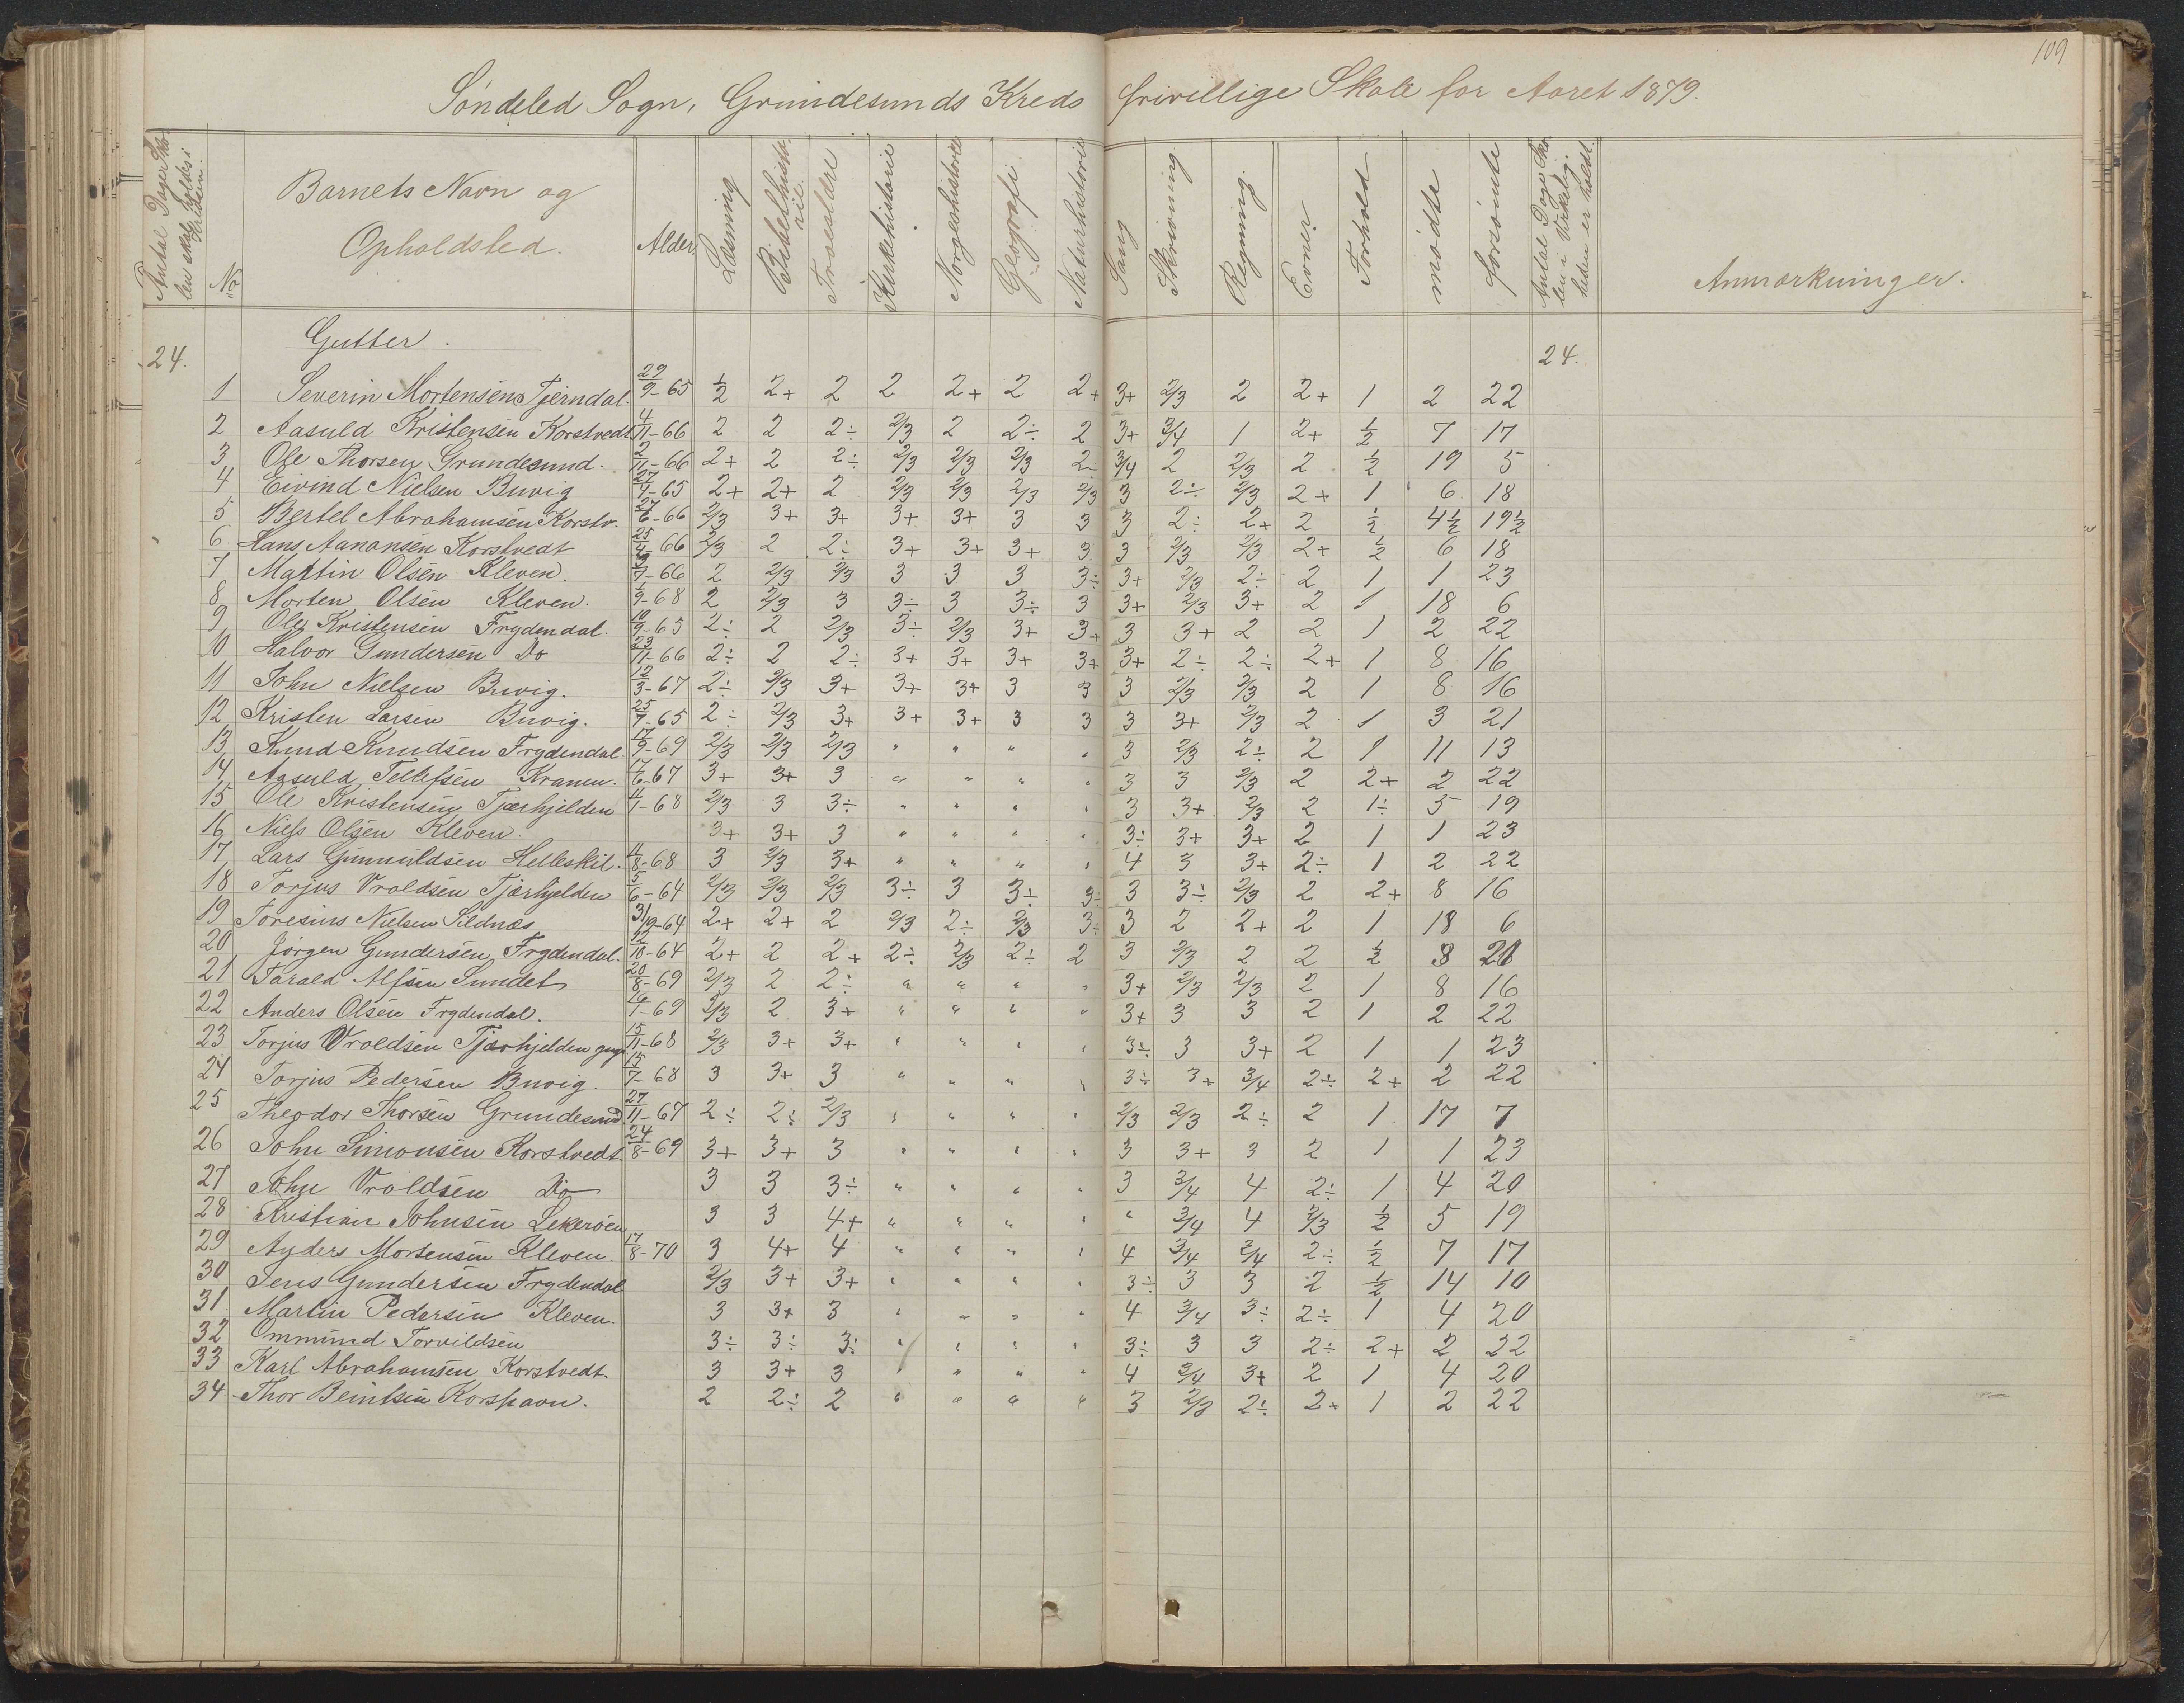 109
Søndeled Sogn, Grundesunds Kreds frivillige Skole for Aaret 1879.
Antal Dage Skolen skal holdes i Kredsen. No Barnets Navn og Opholdsted. Alder Læsning Bibelhistorie Troeslære Kirkehistorie Norgeshistorie Geografi Naturhistorie Sang Skrivning Regning Evner Forhold mødte forsømte Antal Dage Skolen i Virkelig heden er holdt. Anmærkninger.
24. Gutter. 24.
1 Severin Mortensen Tjerndal. 29/9-65 1/2 2+ 2 2 2+ 2 2+ 3+ 2/3 2 2+ 1 2 22
2 Aasuld Kristensen Korstvedt 4/11-66 2 2 2÷ 2/3 2 2÷ 2 3+ 3/4 1 2+ 1/2 7 17
3 Ole Thorsen Grundesund. 2/11-66 2+ 2 2÷ 2/3 2/3 2/3 2÷ 3/4 2 2/3 2 1/2 19 5
4 Eivind Nielsen Buvig 27/7-65 2+ 2+ 2 2/3 2/3 2/3 2/3 3 2÷ 2/3 2+ 1 6 18
5 Bertel Abrahamsen Korstv. 27/6-66 2/3 3+ 3+ 3+ 3+ 3 3 3 2÷ 2+ 2 1/2 4 1/2 19 1/2
6 Hans Aanonsen Korstvedt 25/4-66 2/3 2 2÷ 3+ 3+ 3+ 3 3 2/3 2/3 2+ 1/2 6 18
7 Martin Olsen Kleven. 7-66 2 2/3 2/3 3 3 3 3÷ 3+ 2/3 2÷ 2 1 1 23
8 Morten Olsen Kleven. 1/9-68 2 2/3 3 3÷ 3 3÷ 3 3+ 2/3 3+ 2 1 18 6
9 Ole Kristensen Frydendal. 10/9-65 2÷ 2 2/3 3÷ 2/3 3+ 3+ 3 3+ 2 2 1 2 22
10 Halvor Gundersen Do 23/11-66 2÷ 2 2÷ 3+ 3+ 3+ 3+ 3+ 2÷ 2÷ 2+ 1 8 16
11 John Nielsen Buvig. 12/3-67 2÷ 2/3 3+ 3+ 3+ 3 3 3 2/3 2/3 2 1 8 16
12 Kristen Larsen Buvig. 25/7-65 2÷ 2/3 3+ 3+ 3+ 3 3 3 3+ 2/3 2 1 3 21
13 Knud Knudsen Frydendal. 17/9-69 2/3 2/3 2/3 " " " " 3 2/3 2÷ 2 1 11 13
14 Aasuld Tellefsen Kranen. 17/6-67 3+ 3+ 3 " " " " 3 3 2/3 2 2+ 2 22
15 Ole Kristensen Tjærhjelden 11/1-68 2/3 3 3÷ " " " " 3 3+ 2/3 2 1÷ 5 19
16 Niels Olsen Kleven. 3+ 3+ 3 " " " " 3÷ 3+ 3+ 2 1 1 23
17 Lars Gunnuldsen Helleskil. 11/8-68 3 2/3 3+ " " " " 4 3 3+ 2÷ 1 2 22
18 Torjus Vroldsen Tjærhjelden 5/6-64 2/3 2/3 2/3 3÷ 3 3÷ 3÷ 3 3÷ 2/3 2 2+ 8 16
19 Toresius Nielsen Sildnæs 31/9-64 2+ 2+ 2 2/3 2÷ 2/3 3÷ 3 2 2+ 2 1 18 6
20 Jørgen Gundersen Frydendal. 10-64 2+ 2 2+ 2÷ 2/3 2÷ 2 3 2/3 2 2 1/2 3 21
21 Tarald Alfsen Sundet 20/8-69 2/3 2 2÷ " " " " 3+ 2/3 2/3 2 1 8 16
22 Anders Olsen Frydendal. 26/1-69 2/3 2 3+ " " " " 3+ 3 3 2 1 2 22
23 Torjus Vroldsen Tjærhjelden yngr 15/11-68 2/3 3+ 3+ " " " " 3÷ 3 3+ 2 1 1 23
24 Torjus Pedersen Buvig. 15/7-68 3 3+ 3 " " " " 3÷ 3+ 3/4 2÷ 2+ 2 22
25 Theodor Thorsen Grundesund 27/11-67 2÷ 2÷ 2/3 " " " " 2/3 2/3 2÷ 2 1 17 7
26 John Simonsen Korstvedt. 24/8-69 3+ 3+ 3 " " " " 3 3+ 3 2 1 1 23
27 John Vroldsen Do 3 3 3÷ " " " " 3 3/4 4 2÷ 1 4 20
28 Kristian Johnsen Lekerøen 3 3 4+ " " " " " 3/4 4 2/3 1/2 5 19
29 Anders Mortensen Kleven. 17/8-70 3 4+ 4 " " " " 4 3/4 3/4 2÷ 1/2 7 17
30 Jens Gundersen Frydendal 2/3 3+ 3+ " " " " 3÷ 3 3 2 1/2 14 10
31 Martin Pedersen Kleven. 3 3+ 3 " " " " 4 3/4 3÷ 2÷ 1 4 20
32 Ommund Torvildsen 3÷ 3÷ 3÷ " " " " 3÷ 3 3 2÷ 2+ 2 22
33 Karl Abrahamsen Korstvedt. 3 3+ 3 " " " " 4 3/4 3+ 2 1 4 20
34 Thor Beintsen Korshavn. 2 2÷ 2 " " " " 3 2/3 2÷ 2+ 1 2 22